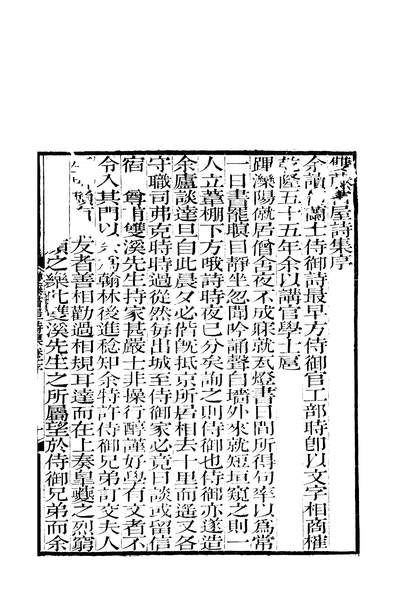 書屋詩集序
余讀蘭士侍御詩最早方侍御官工部時卽以文字相商榷
乾隆五十五年余以講官學士扈
蹕灤陽僦居僧舍夜不成寐就瓦燈書日間所得句率以爲常
一日書罷瞑目靜坐忽聞吟誦聲自墻外來就短垣窺之則一
人立葦棚下方哦詩時夜已分矣詢之則侍御也侍御亦遂造
余廬談達旦自此晨夕必偕旣抵京所居相去十里而遙又各
守職司弗克時時過從然每出城至侍御家必竟日談或留信
宿 尊甫雙溪先生持家甚嚴士非操行醇謹好學有文者不
令入其門以 翰林後進稔知余特許侍御兄弟訂交夫人
友者善相勸過相規耳達而在上奏皇夔之烈窮
之樂此雙溪先生之所屬望於侍御兄弟而余